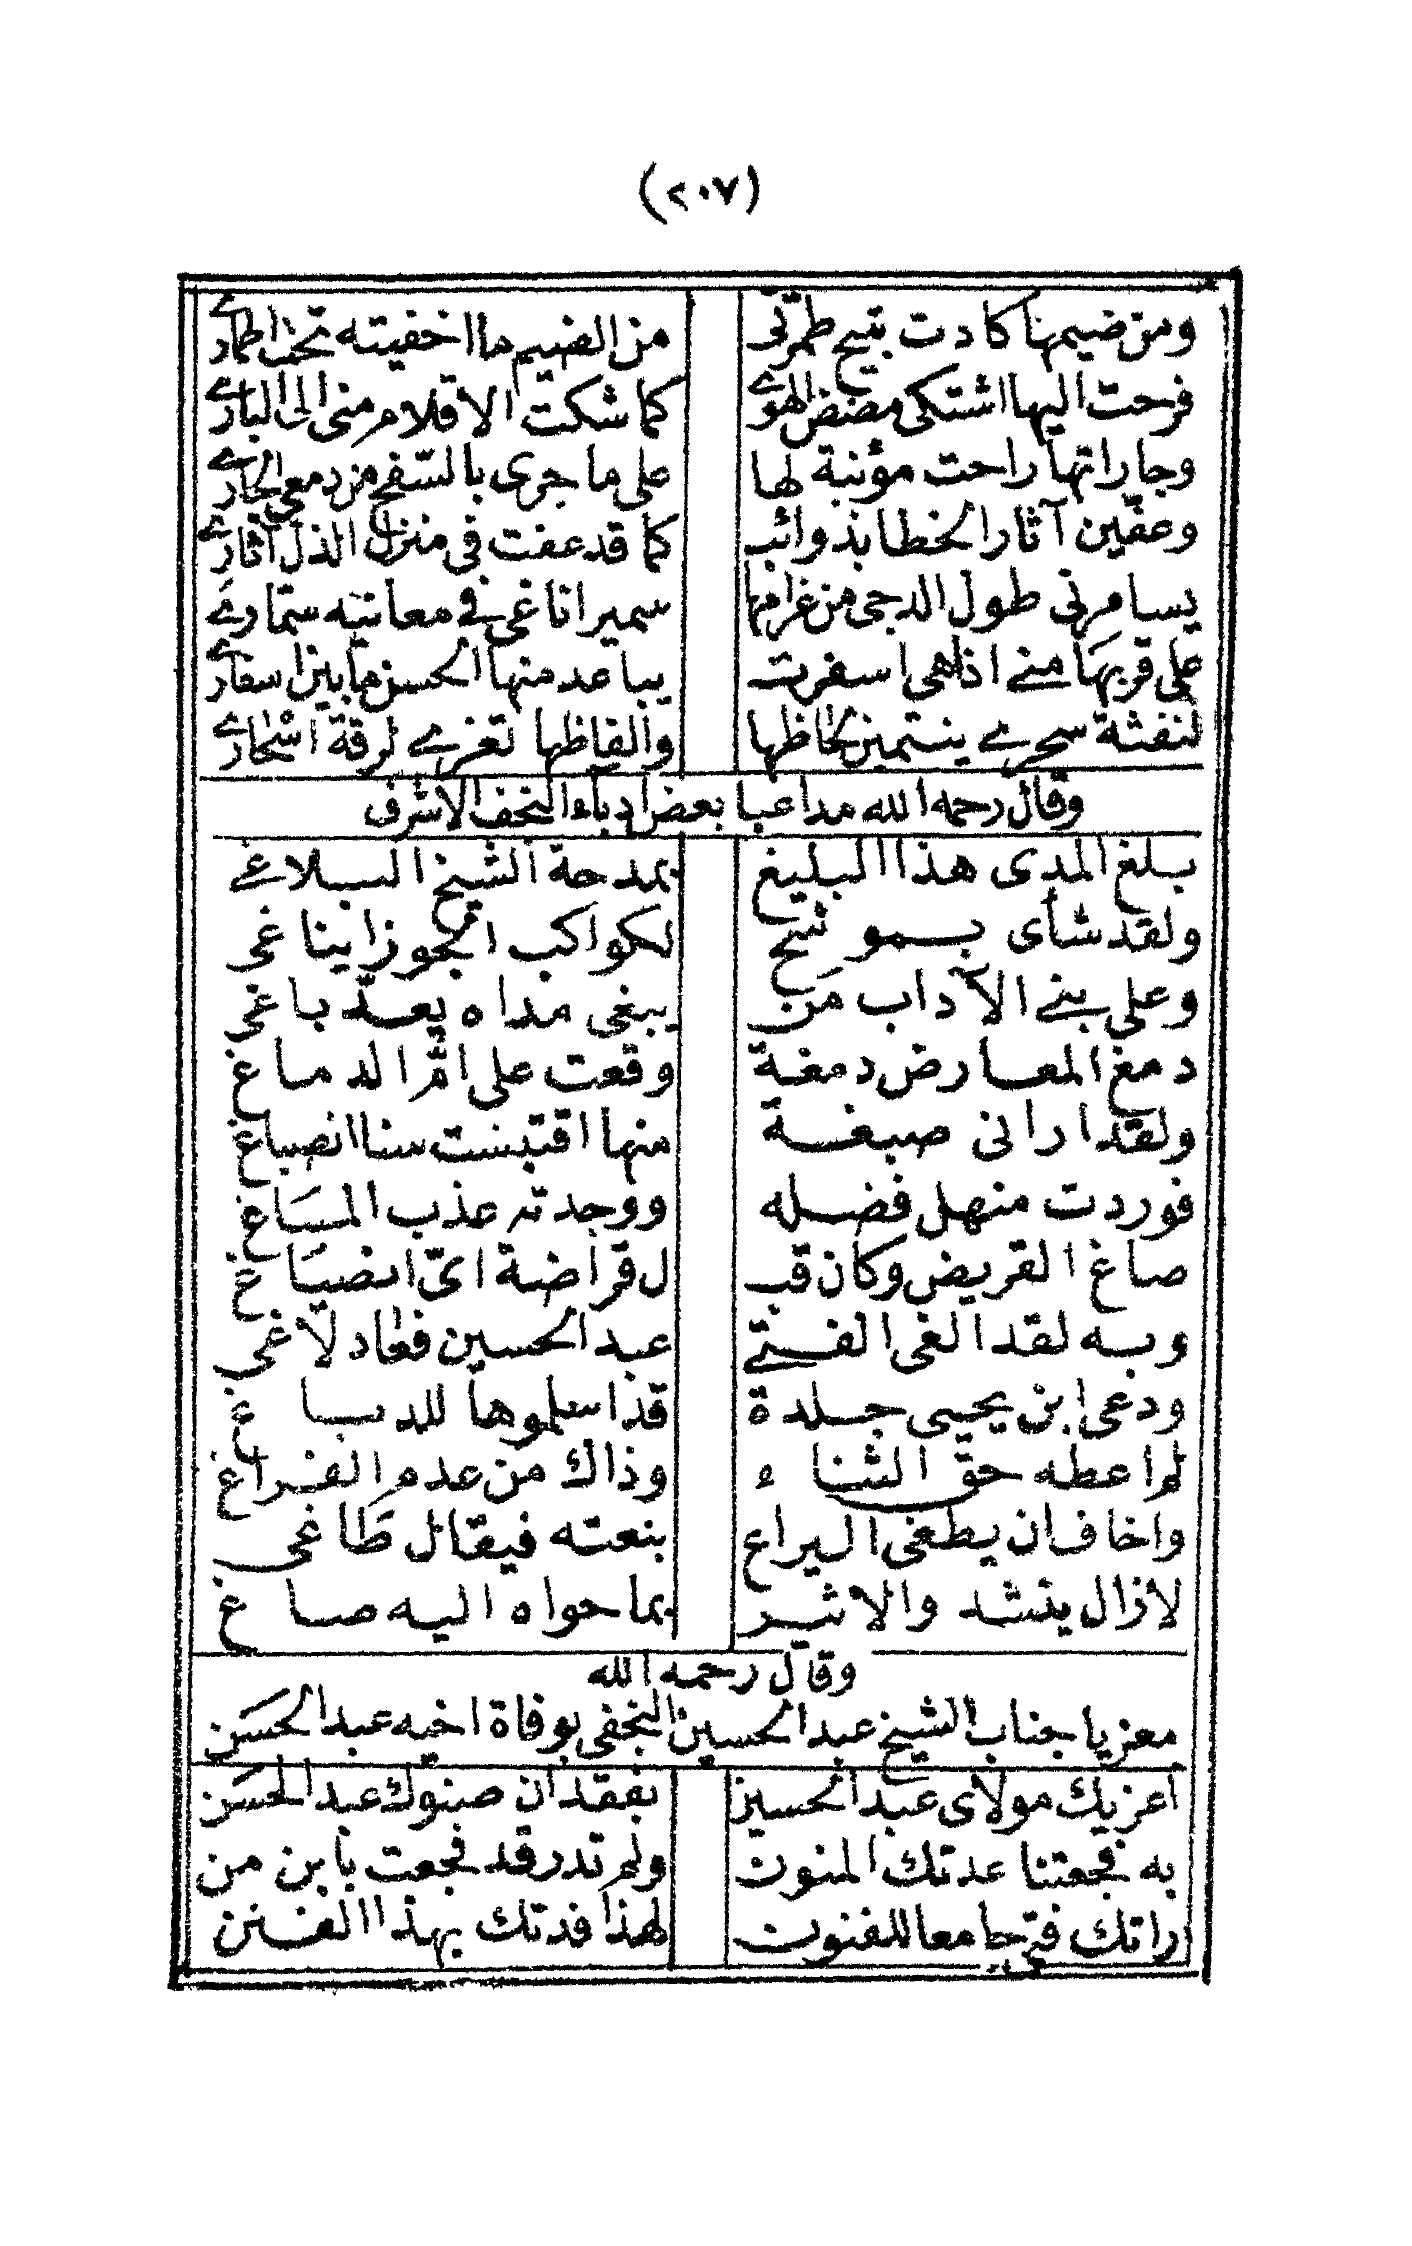 (٢٠٧)
ومن ضيمها كادت تبيح طمرتى من الضيم ما اخفيته تحت اطمارے
فرحت اليها اشتكى مضض الهوے كما شكت الاقلام منى الى البارے
وجاراتها راحت مؤنبة لها على ما جرى بالسّفح من دمعي الجارے
وعفّين آثار الخطا بذوائب كما قد عفت في منزل الذل آثارے
يسامرنى طول الدجى من غرامها سميرانا غى فے معانيه ستمارے
على قربها منے اذا هى اسفرت يباعد منها الحسن ما بين اسفارے
لنفثة سحرے ينتمين لحاظها والفاظها تغرے لرقة اسْحارے
وقال رحمه الله مداعبا بعض ادباء النجف الاشرف
بلغ المدى هذا البليغ بمدحة الشيخ البلاغے
ولقد شأى بموشح لكواكب الجوزا يناغى
وعلى بنے الآداب مَن يبغى مداه يعدّ باغى
دمغ المعارض دمغة وقعت على امّ الدماغ
ولقد ارانى صبغة منها اقتبست سنا انصباغ
فوردت منهل فضله ووجدته عذب المسَاغ
صاغ القريض وكان قبـ ل قراضة اىّ انصيَاغ
وبه لقد الغى الفتے عبد الحسين فعاد لاغى
ودعى ابن يحيى جلدة قذا سلموها للدباغ
لم اعطه حق الثناء وذاك من عدم الفراغ
واخاف ان يطغى اليراع بنعته فيقال طَاغى
لازال ينشد والاثير بما حواه اليه صاغ
وقال رحمه الله
معزيا جناب الشيخ عبد الحسين النجفى بوفاة اخيه عبد الحسَن
اعزيك مولاى عبد الحسين بفقدان صنوك عبد الحسَن
به فجعتنا عدتك المنون ولم تدر قد فجعت بابن من
راتك فتى جامعا للفنون لهذا فدتك بهذا الفنن